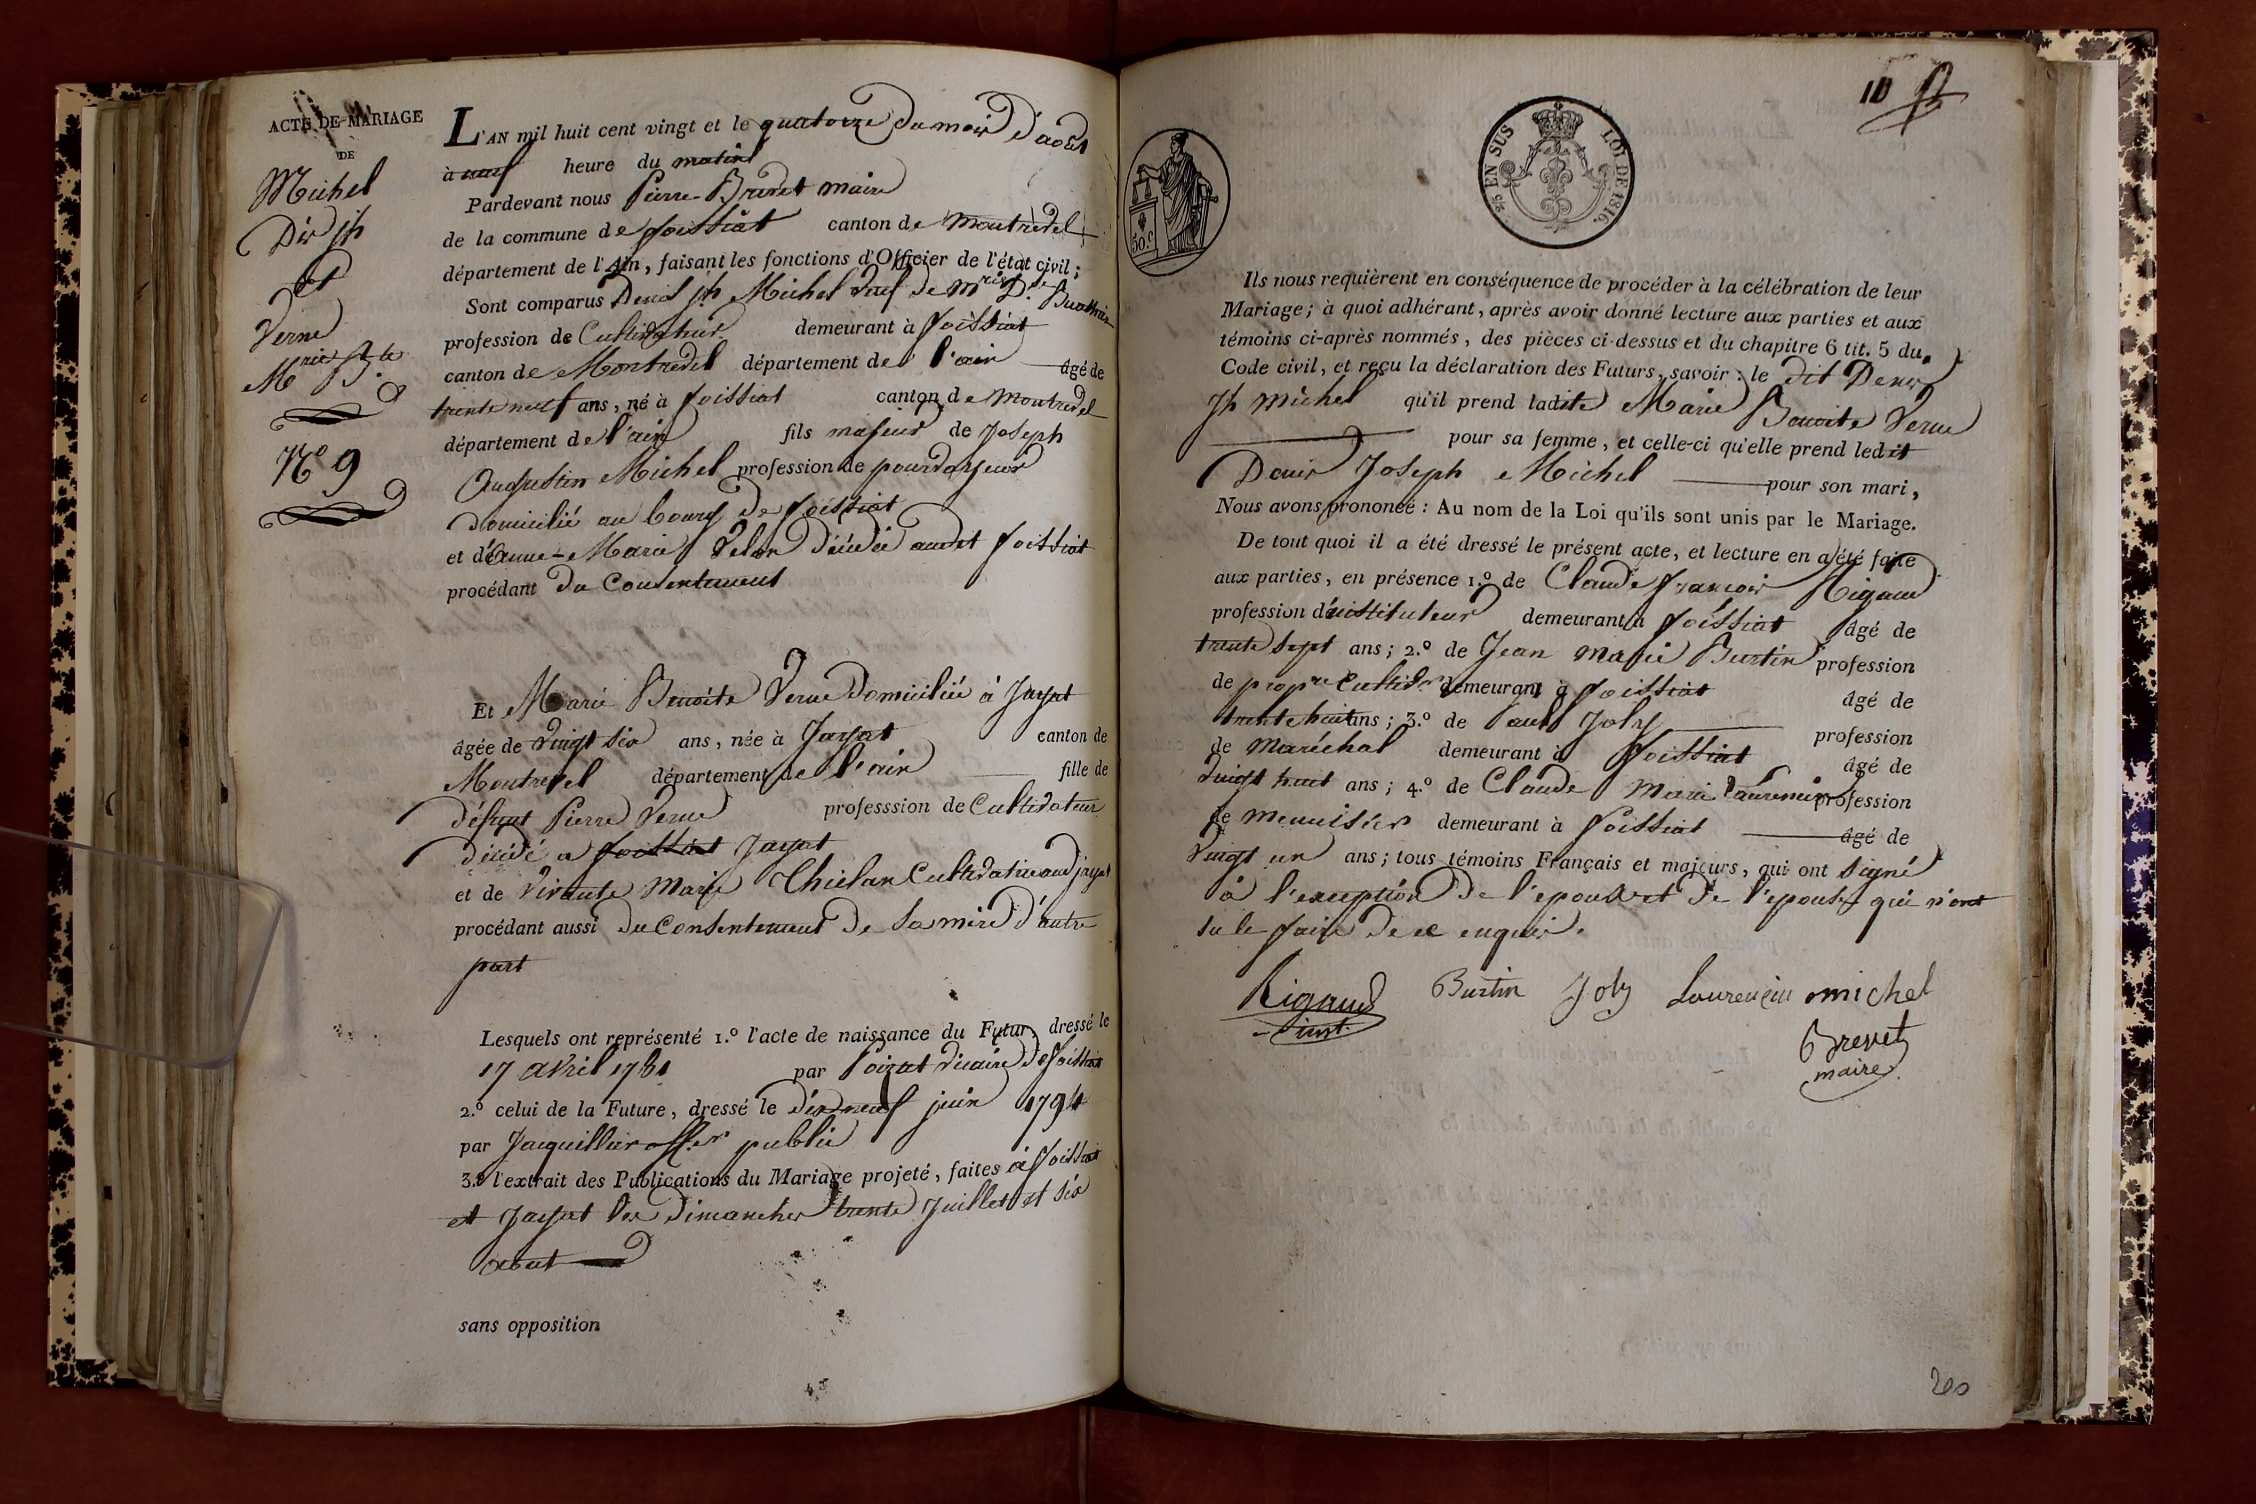 ACTE DE MARIAGE
DE
Michel
Dis jh
et
Verne
Mrie Bte
N° 9
L'AN mil huit cent vingt et le quatorze du mois d'aout
à neuf heure du matin
Pardevant nous Pierre Brevet maire
de la commune de foissiat canton de Montrevel
département de l'Ain, faisant les fonctions d'Officier de l'état civil;
Sont comparus Denis jh Michel veuf de mrie
profession de Cultivateur demeurant à foissiat
canton de Montrevel département de l'ain âgé de
trente neuf ans, né à foissiat canton de Montrevel
département de l'ain fils majeur de Joseph
Augustin Michel profession de
domicilié au bourg de foissiat
et d'anne-Marie Velon décédée audit foissiat
procédant du Consentement
Et Marie Benoite Verne domiciliée à Jayat
âgée de vingt six ans, née à Jayat canton de
Montrevel département de l'ain fille de
défunt Pierre Verne professsion de Cultivateur
décédé a foissiat Jayat
et de vivante Marie Cultivatrice aud jayat
procédant aussi du Consentement de Sa mere d'autre
part
Lesquels ont représenté 1.° l'acte de naissance du Futur, dressé le
17 avril 1781 par vicaire de foissiat
2.° celui de la Future, dressé le dix neuf juin 1794
par Jacquillier offer public
3.° l'extrait des Publications du Mariage projeté, faites à foissiat
et Jayat les dimanches trente Juillet et six
aout
sans opposition
10
25 EN SUS
LOI DE 1816.
50.c
Ils nous requièrent en conséquence de procéder à la célébration de leur
Mariage; à quoi adhérant, après avoir donné lecture aux parties et aux
témoins ci-après nommés, des pièces ci-dessus et du chapitre 6 tit. 5 du
Code civil, et reçu la déclaration des Futurs, savoir: le dit Denis
Jh Michel qu'il prend ladite Marie Benoite Verne
pour sa femme, et celle-ci qu'elle prend ledit
Denis Joseph Michel pour son mari,
Nous avons prononcé: Au nom de la Loi qu'ils sont unis par le Mariage.
De tout quoi il a été dressé le présent acte, et lecture en a été faite
aux parties, en présence 1.° de Claude françois Rigaud
profession d'instituteur demeurant à foissiat âgé de
trente sept ans; 2.° de Jean Marie Burtin profession
de propre cultivr demeurant à foissiat âgé de
trente huit ans; 3.° de Paul Joly profession
de Maréchal demeurant à foissiat âgé de
vingt huit ans; 4.° de Claude Marie Laurencin profession
de menuisier demeurant à foissiat âgé de
vingt un ans; tous témoins Français et majeurs, qui ont signé
à l'exception de l'epoux et de l'épouse qui n'ont
su le faire de ce enquis.
Rigaud Burtin Joly Laurencin michel
inst.
Brevet
maire
200